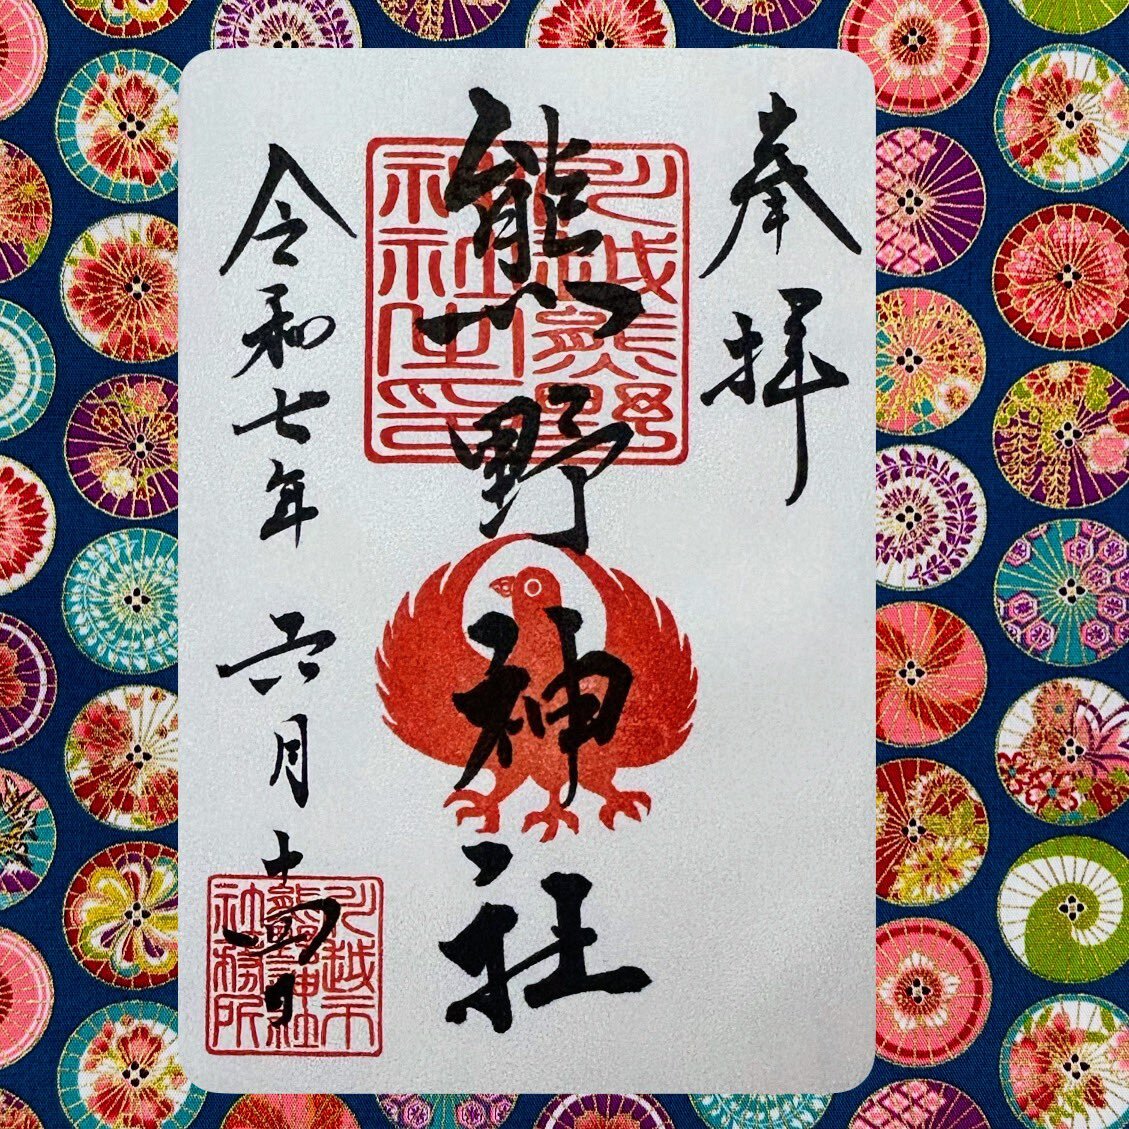 奉拝
熊野神社
川越熊野
神社之印
令和七年 六月十四日
川越市
熊野神社
社務所